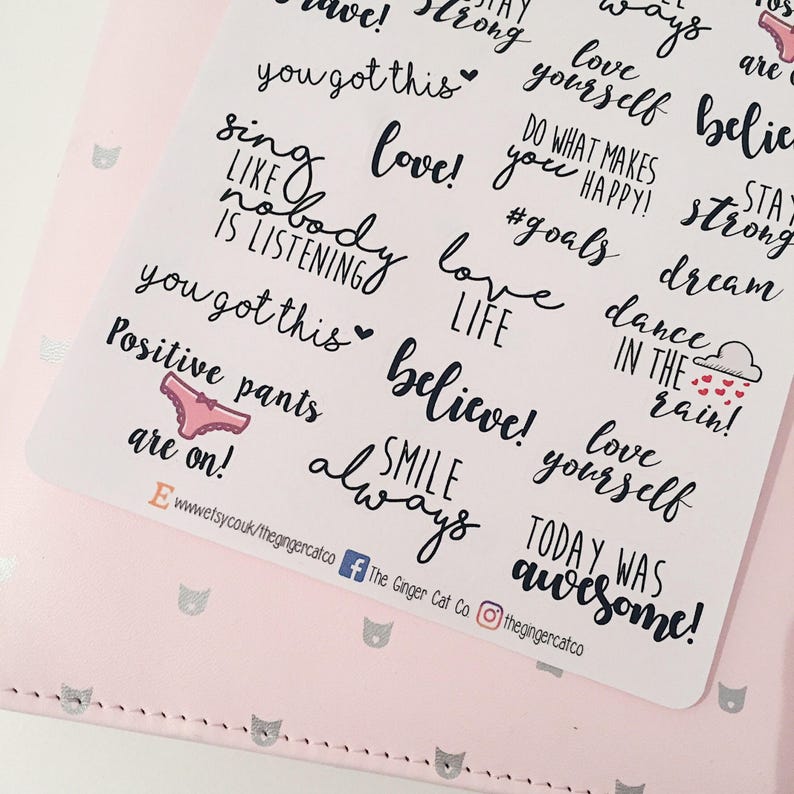 brave!
STAY
strong
always
are
you got this
love
yourself
believe
sing
LIKE
nobody
IS LISTENING
love!
DO WHAT MAKES
you HAPPY!
STAY
strong
#goals
dream
you got this
love
LIFE
dance
IN THE
rain!
Positive pants
are on!
believe!
love
yourself
SMILE
always
TODAY WAS
awesome!
www.etsy.co.uk/thegingercatco
The Ginger Cat Co.
thegingercatco